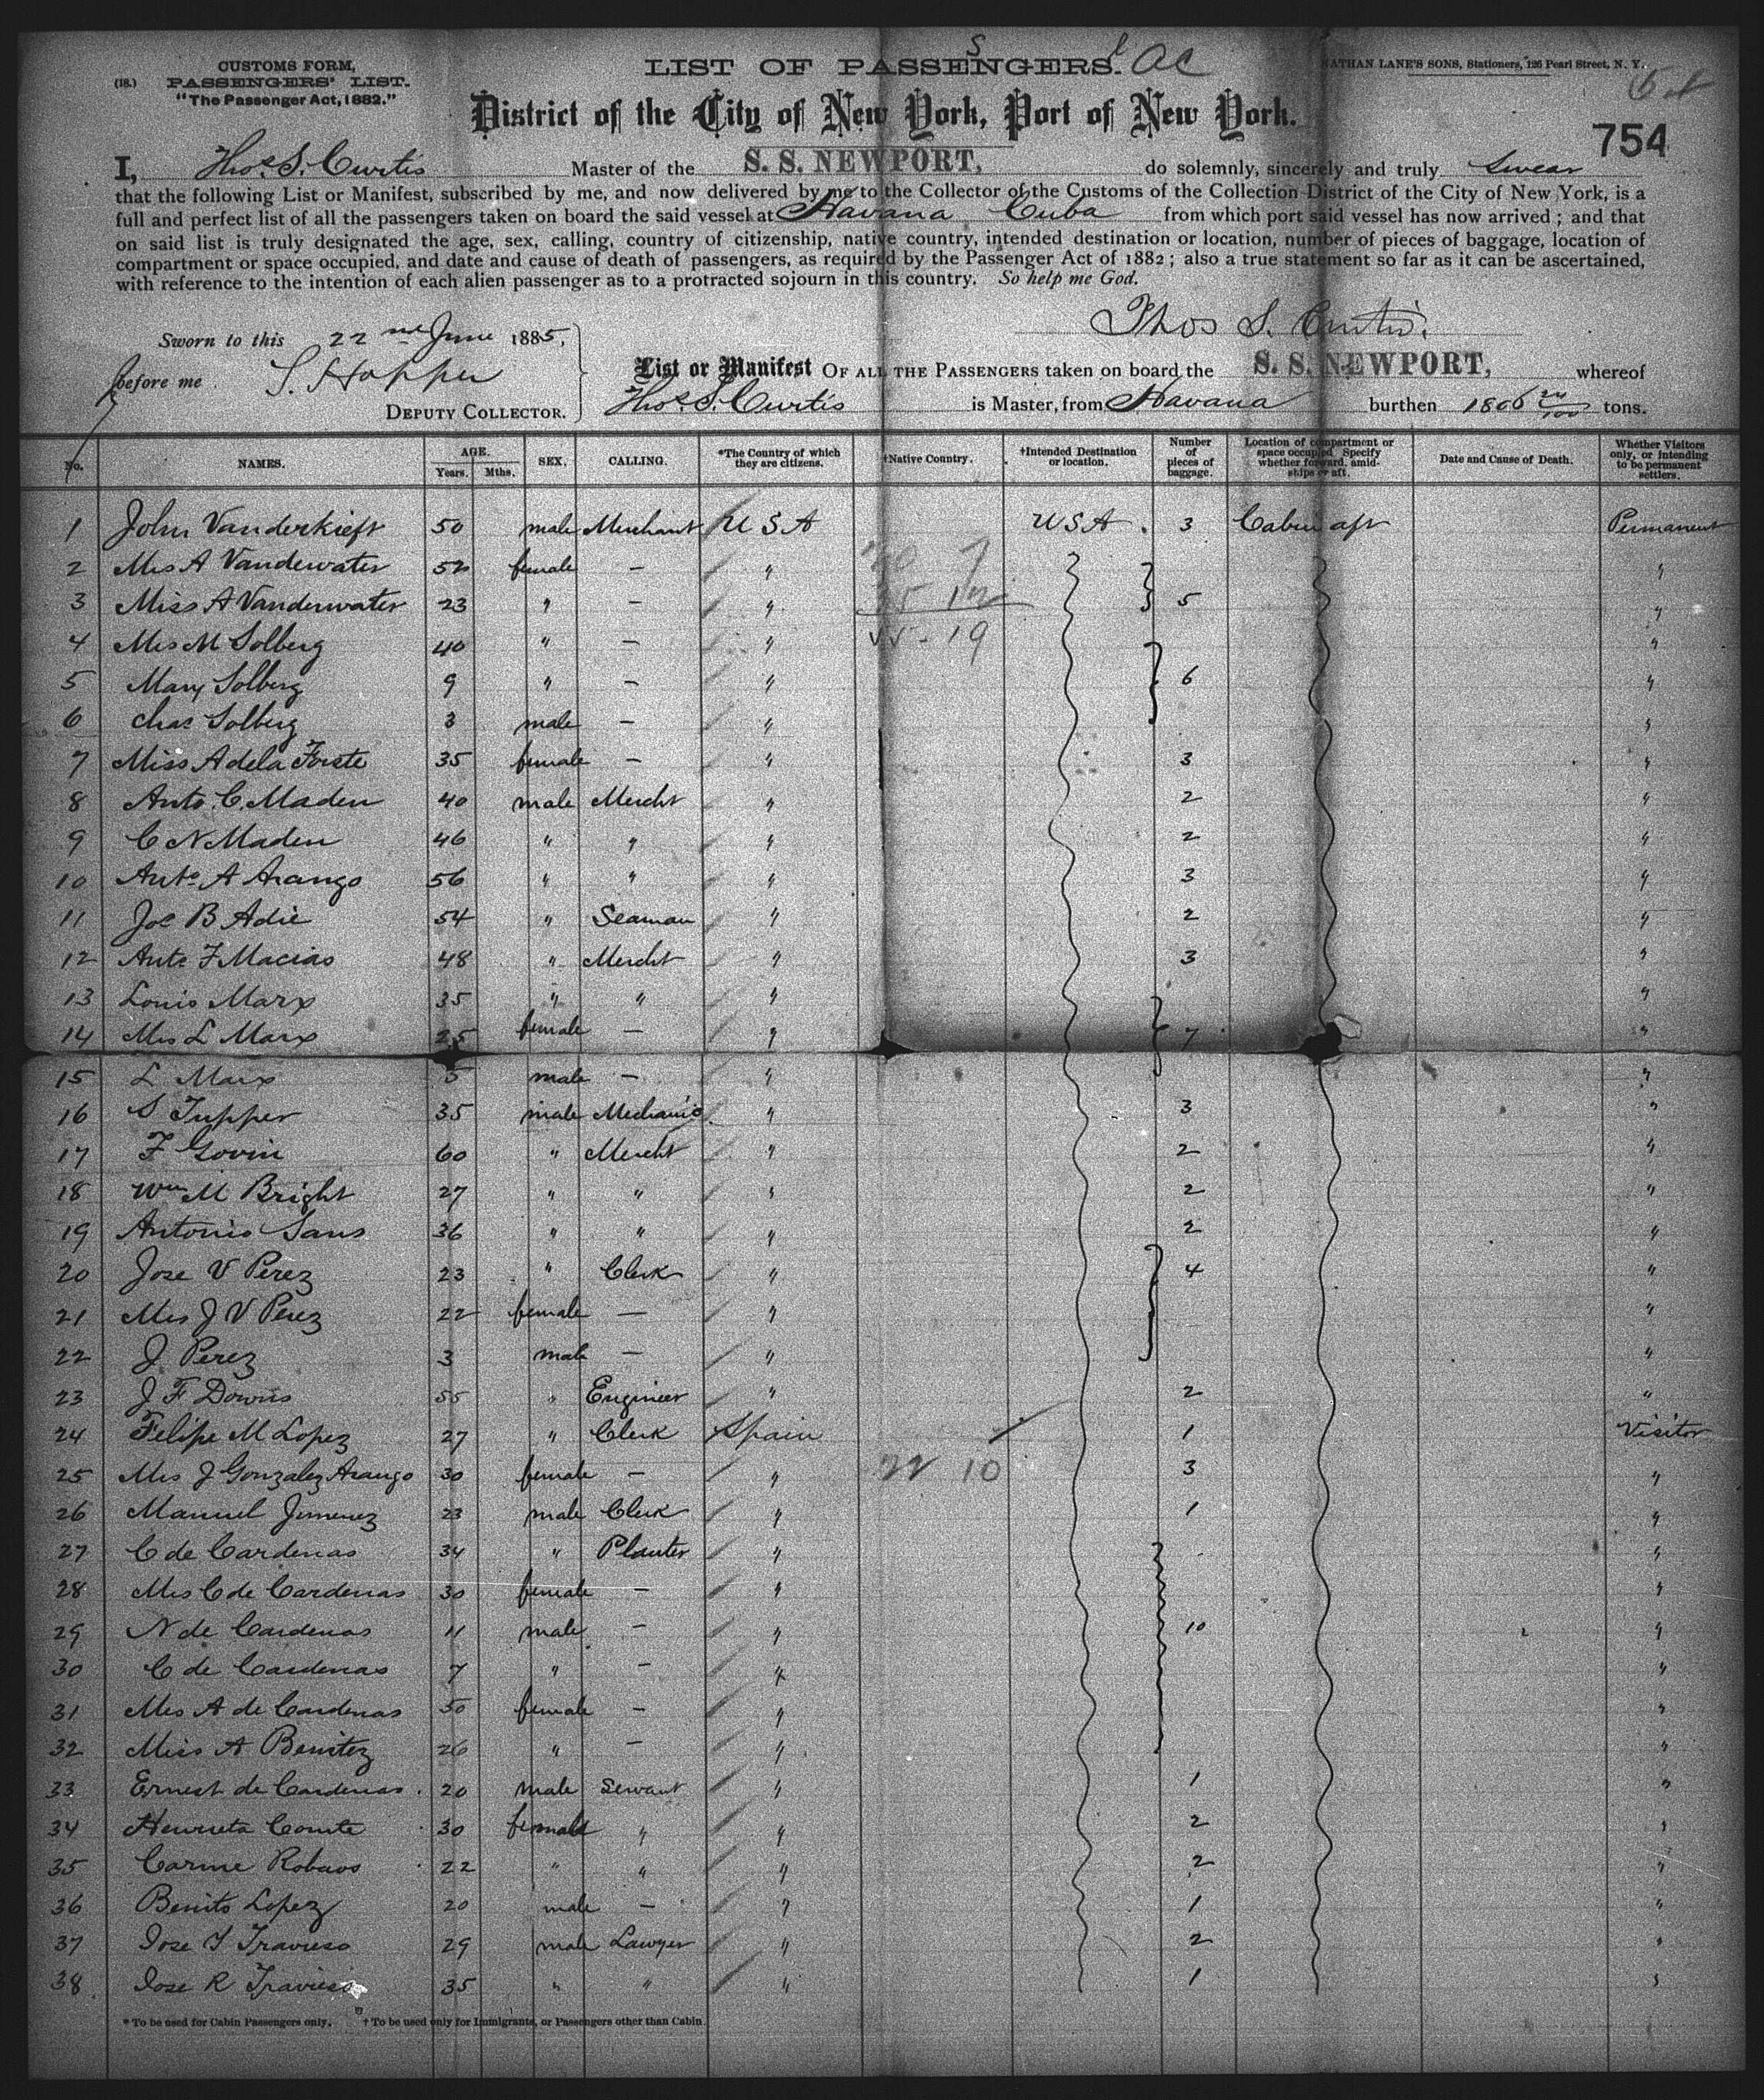 LIST OF PASSENGERS.
CUSTOMS FORM,
(18.) PASSENGERS' LIST.
"The Passenger Act, 1882."
NATHAN LANE'S SONS, Stationers, 126 Pearl Street, N. Y.
District of the City of New York, Port of New York.
754
I, Thos. S. Curtis Master of the S. S. NEWPORT, do solemnly, sincerely and truly swear
that the following List or Manifest, subscribed by me, and now delivered by me to the Collector of the Customs of the Collection District of the City of New York, is a
full and perfect list of all the passengers taken on board the said vessel at Havana Cuba from which port said vessel has now arrived; and that
on said list is truly designated the age, sex, calling, country of citizenship, native country, intended destination or location, number of pieces of baggage, location of
compartment or space occupied, and date and cause of death of passengers, as required by the Passenger Act of 1882; also a true statement so far as it can be ascertained,
with reference to the intention of each alien passenger as to a protracted sojourn in this country. So help me God.
Thos S. Curtis.
Sworn to this 22nd June 1885,
before me S. Hopper
DEPUTY COLLECTOR.
List or Manifest OF ALL THE PASSENGERS taken on board the S. S. NEWPORT, whereof
Thos. S. Curtis is Master, from Havana burthen 1806 tons.
No. NAMES. AGE. Years. Mths. SEX. CALLING. *The Country of which they are citizens. †Native Country. †Intended Destination or location. Number of pieces of baggage. Location of compartment or space occupied. Specify whether forward, amidships or aft. Date and Cause of Death. Whether Visitors only, or intending to be permanent settlers.
1 John Vanderkieft 50 male Merchant U S A U S A. 3 Cabin aft Permanent
2 Mrs A Vandewater 52 female — " "
3 Miss A Vanderwater 23 " — " 5 "
4 Mrs M Solberg 40 " — " "
5 Mary Solberg 9 " — " 6 "
6 Chas Solberg 3 male — " "
7 Miss Adela Forste 35 female — " 3 "
8 Anto. C. Maden 40 male Mercht " 2 "
9 C N Maden 46 " " " 2 "
10 Anto A Arango 56 " " " 3 "
11 Joe B Adie 54 " Seaman " 2 "
12 Anto F Macias 48 " Mercht " 3 "
13 Louis Marx 35 " " " "
14 Mrs L Marx 25 female — " 7 "
15 L Marx 5 male — " "
16 S Tupper 35 male Mechanic " 3 "
17 F Govin 60 " Mercht " 2 "
18 Wm M Bright 27 " " " 2 "
19 Antonio Sans 36 " " " 2 "
20 Jose V Perez 23 " Clerk " 4 "
21 Mrs J V Perez 22 female — " "
22 J Perez 3 male — " "
23 J F Downs 55 " Engineer " 2 "
24 Felipe M Lopez 27 " Clerk Spain 1 Visitor
25 Mrs J Gonzalez Arango 30 female — " 3 "
26 Manuel Jimenez 23 male Clerk " 1 "
27 C de Cardenas 34 " Planter " "
28 Mrs C de Cardenas 30 female — " "
29 N de Cardenas 11 male — " 10 "
30 C de Cardenas 7 " — " "
31 Mrs A de Cardenas 50 female — " "
32 Miss A Benitez 26 " — " "
33 Ernest de Cardenas 20 male Servant " 1 "
34 Henrieta Comte 30 female " " 2 "
35 Carme Robaos 22 " " " 2 "
36 Benito Lopez 20 male — " 1 "
37 Jose Travieso 29 male Lawyer " 2 "
38 Jose R Travieso 35 " " " 1 "
* To be used for Cabin Passengers only. † To be used only for Immigrants, or Passengers other than Cabin.